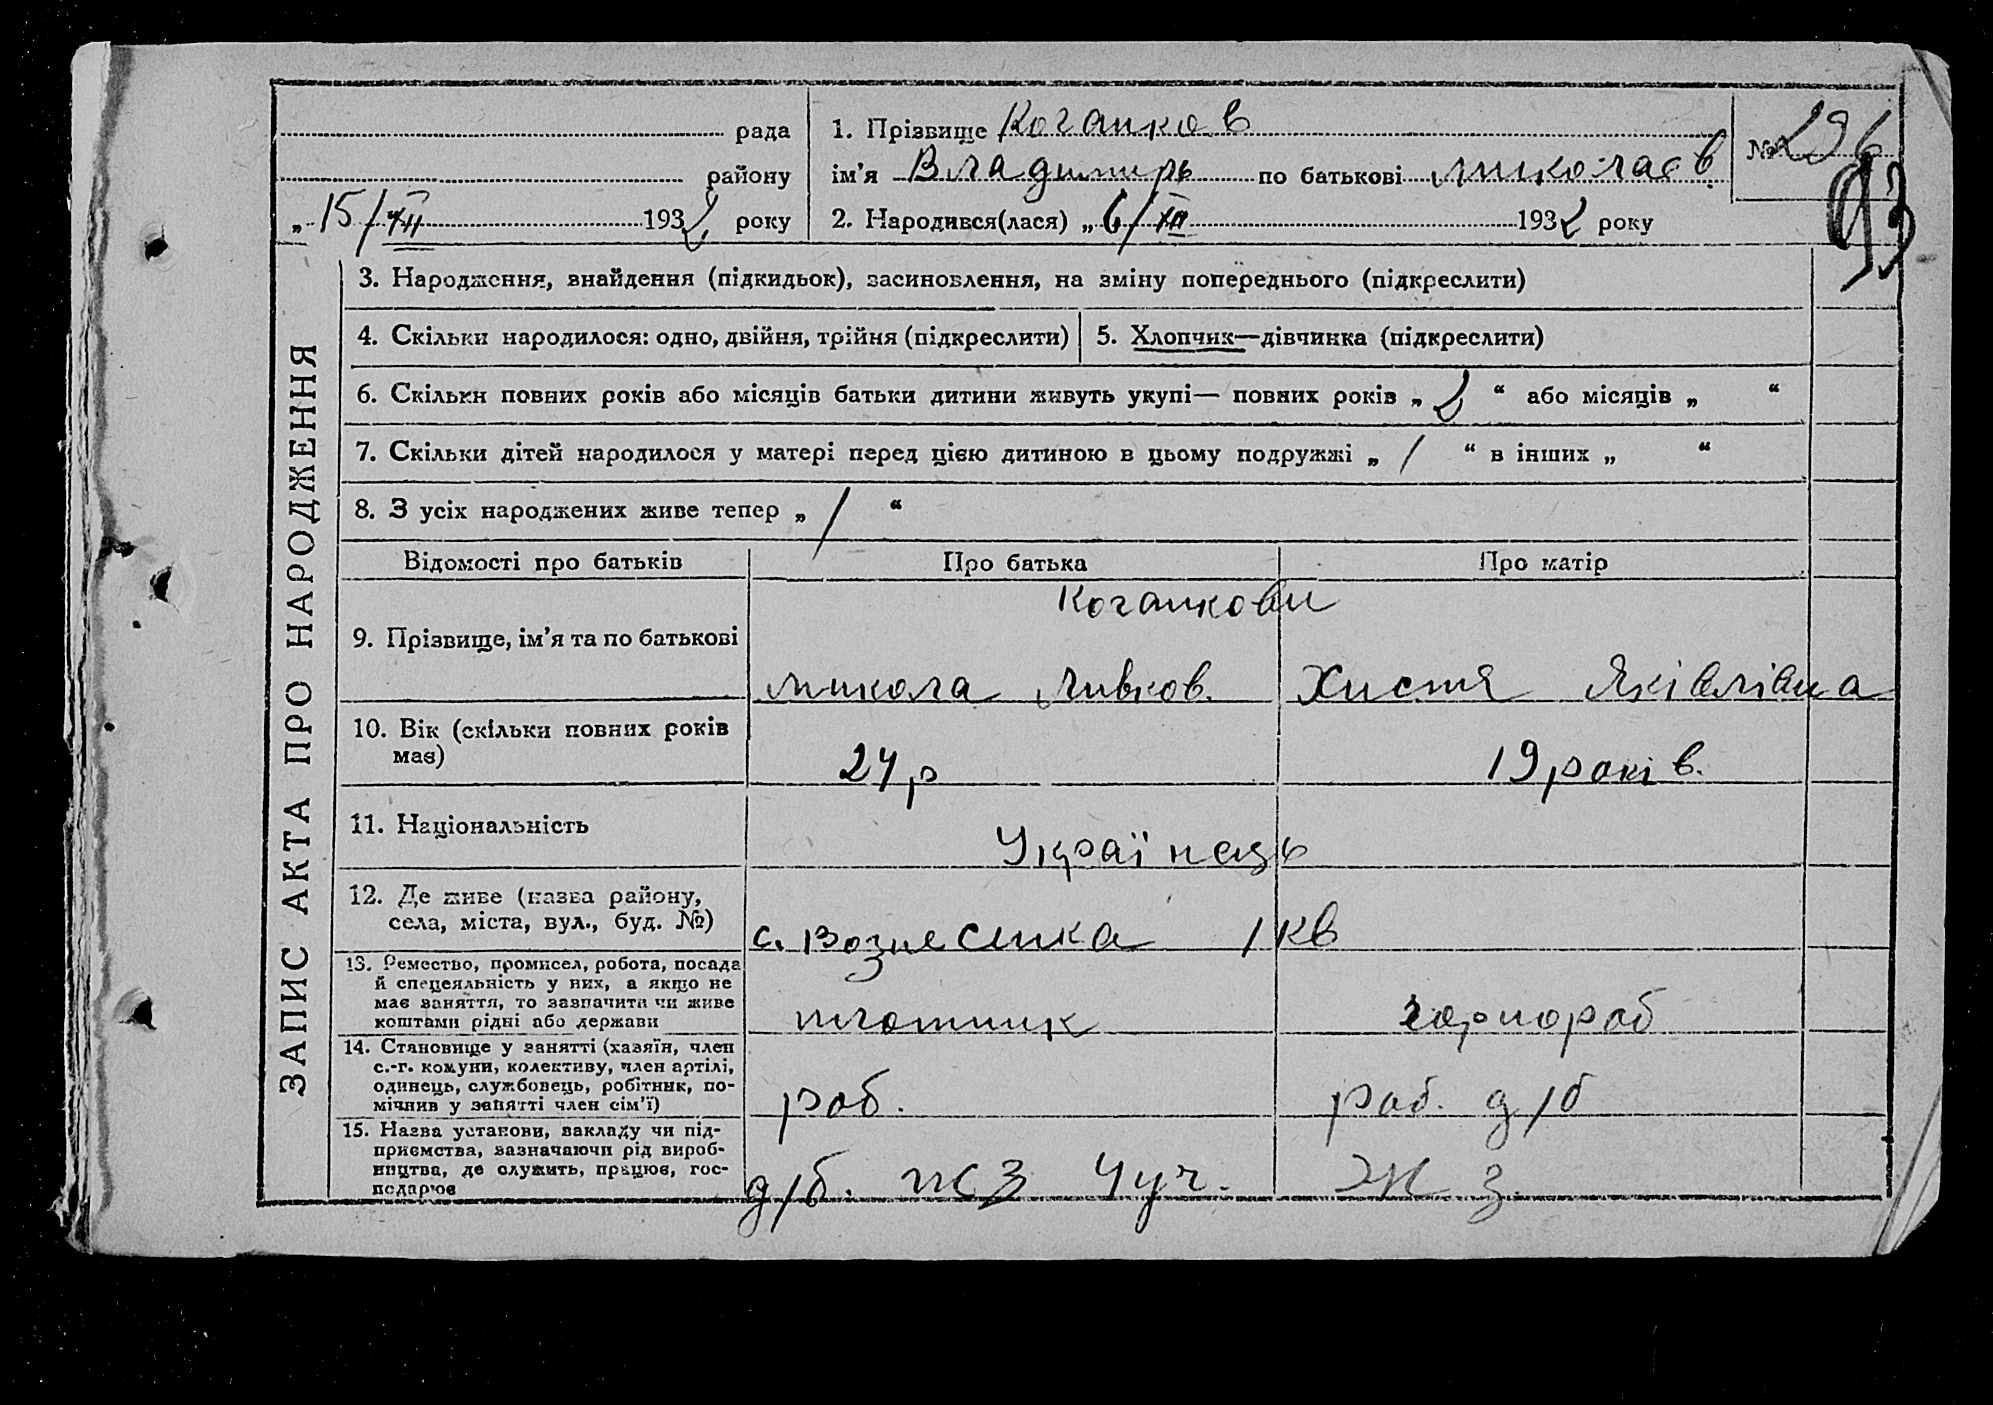 рада
району
„ 15/XII 1932 року
1. Прізвище Коганков
ім’я Владимирь по батькові Миколаєв
2. Народився(лася) „ 6/XII 1932 року
№ 296
93
ЗАПИС АКТА ПРО НАРОДЖЕННЯ
3. Народження, знайдення (підкидьок), засиновлення, на зміну попереднього (підкреслити)
4. Скільки народилося: одно, двійня, трійня (підкреслити)
5. Хлопчик—дівчинка (підкреслити)
6. Скільки повних років або місяців батьки дитини живуть укупі— повних років „ 2 “ або місяців „ “
7. Скільки дітей народилося у матері перед цією дитиною в цьому подружжі „ 1 “ в інших „ “
8. З усіх народжених живе тепер „ 1 “
Відомості про батьків
Про батька
Про матір
9. Прізвище, ім’я та по батькові
Коганкови
Микола
Христя Яківлівна
10. Вік (скільки повних років
має)
24 р
19 років.
11. Національність
Українець
12. Де живе (назва району,
села, міста, вул., буд. №)
с. Вознесенка 1 кв
13. Ремество, промисел, робота, посада
й спецеяльність у них, а якщо не
має заняття, то зазначити чи живе
коштами рідні або держави
плотник
чорнороб
14. Становище у занятті (хазяїн, член
с.-г. комуни, колективу, член артілі,
одинець, службовець, робітник, по-
мічнив у занятті член сім’ї)
роб.
роб. д/б
15. Назва установи, закладу чи під-
приємства, зазначаючи рід вироб-
ництва, де служить, працює, гос-
подарює
д/б. ЖЗ 4 уч.
ЖЗ.